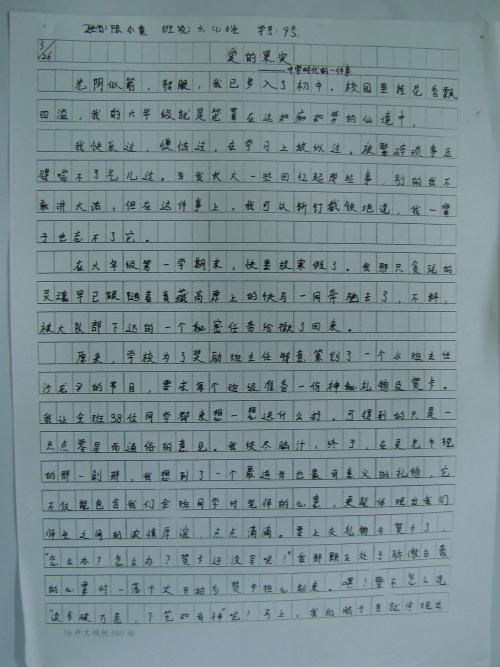 姓名:陈小重 班级:六(4)班 学号:9号
5/26
爱的果实
——中学时代的一件事
光阴似箭,转眼,我已步入了初中,校园里桂花香飘
四溢,我的六年级就是笼罩在这如痴如梦的仙境中。
我快乐过,懊恼过,在学习上放纵过,被繁碎琐事压
得喘不了气儿过。当我长大一些回忆起那些事,别的我不
敢讲大话,但在这件事上,我可以斩钉截铁地说,我一辈
子也忘不了它。
在六年级第一学期末,快要放寒假了。我那只贪玩的
灵魂早已跟随着青藏高原上的快马一同奔驰去了,不料,
被大队部下达的一个秘密任务给揪了回来。
原来,学校为了奖励班主任特意策划了一个从班主任
沙龙的节目,要求每个班级准备一份神秘礼物及贺卡。
我让全班38位同学都来想一想送什么好。可得到的只是一
点点零星而通俗的意见。我绞尽脑汁,终于,在灵光乍现
的那一刹那,我想到了一个最适当也最有意义的礼物,它
不仅能包含我们全班同学对老师的心意,更能体现出我们
师生之间的浓情厚谊,点点滴滴。要上交礼物与贺卡了,
“怎么办?怎么办?贺卡还没写呢!”我那颗正处于骄傲自豪
的心霎时一落千丈开始为贺卡担心起来。嘿!要不怎么说
“读书破万卷,下笔如有神”呢!马上,我的脑子里就浮现出
16开文稿纸500格